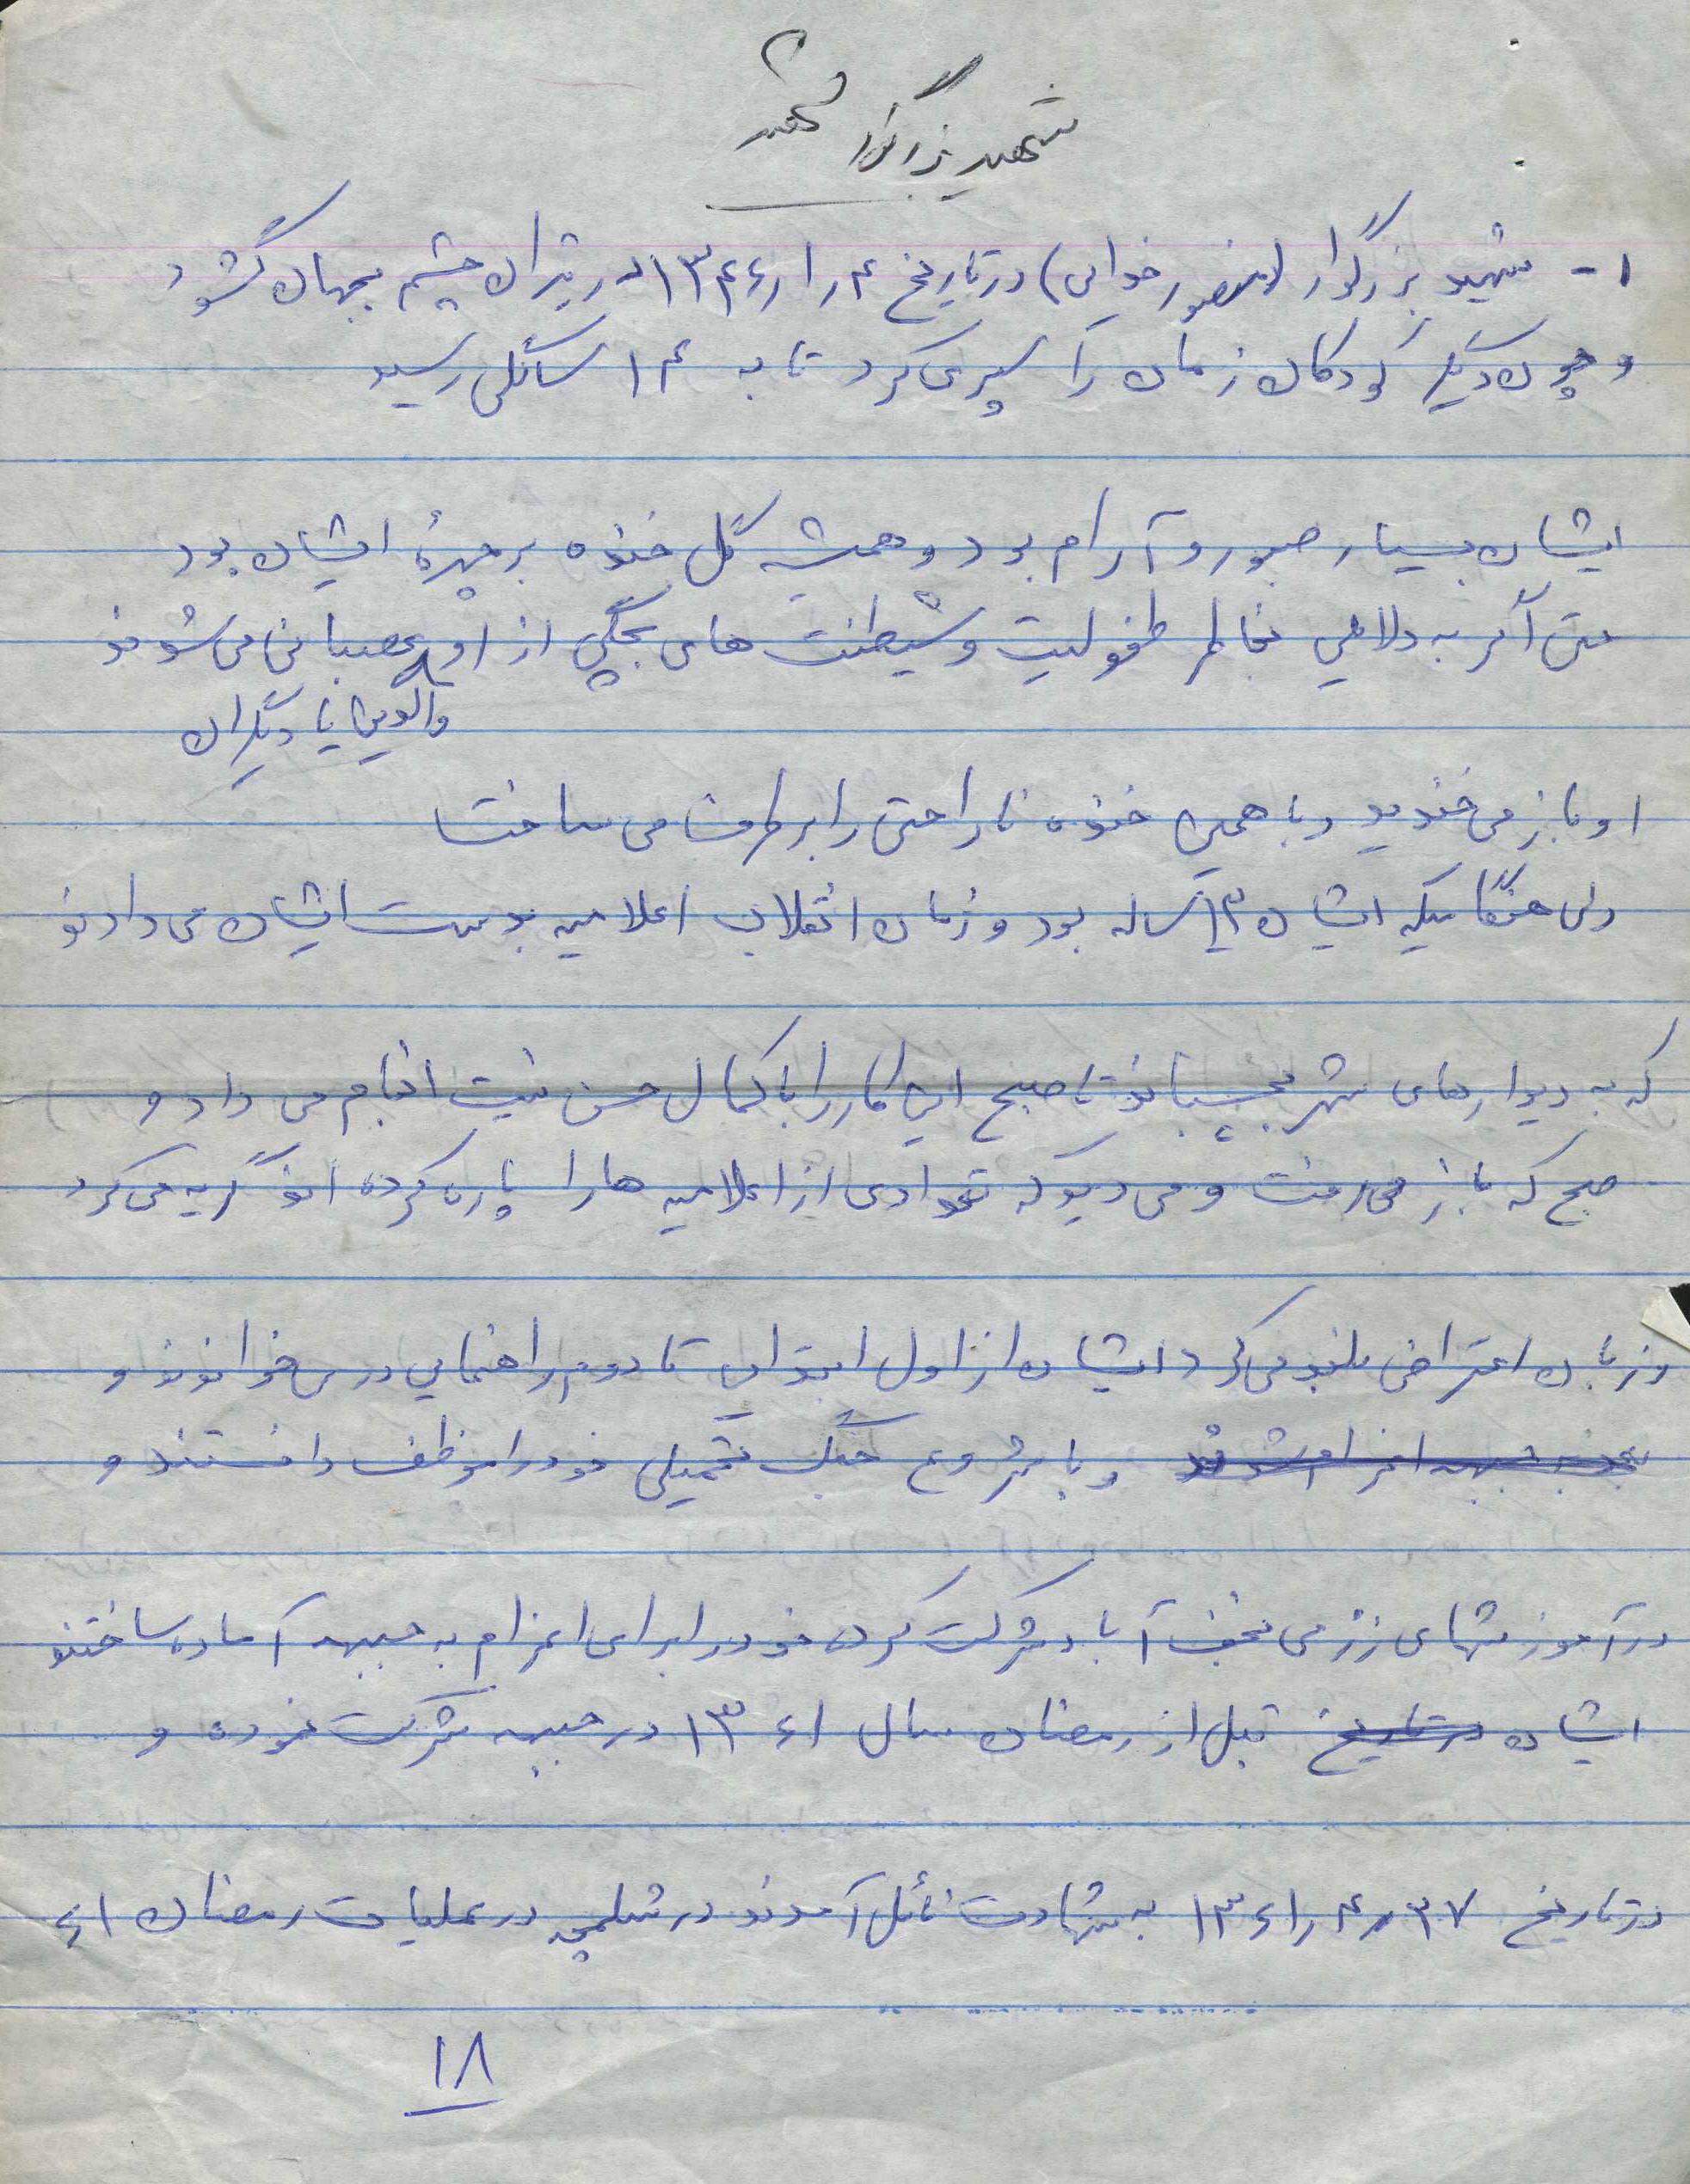 شهید بزرگوار
۱- شهید بزرگوار (منصور خدایی) در تاریخ ۴ر۱ر۱۳۴۶ در تیران چشم بجهان گشود
و چون دیگر کودکان زمان را سپری کرد تا به ۱۴ سالگی رسید
ایشان بسیار صبور و آرام بود و همیشه گل خنده بر چهرۀ ایشان بود
حتی اگر به دلایلی بخاطر طفولیت و شیطنت های بچگی از او عصبانی می شدند
والدین یا دیگران
او باز می خندید و با همین خنده ناراحتی را برطرف می ساخت
ولی هنگامیکه ایشان ۱۳ ساله بود و زمان انقلاب اعلامیه بدست ایشان می دادند
که به دیوارهای شهر بچسباند تا صبح این کار را با کمال حسن نیت انجام می داد و
صبح که باز می رفت و می دید که تعدادی از اعلامیه ها را پاره کرده اند گریه می کرد
و زبان اعتراض بلند می کرد ایشان از اول ابتدایی تا دوم راهنمایی درس خواندند و
و با شروع جنگ تحمیلی خود را موظف دانستند و
در آموزشهای رزمی نجف آباد شرکت کرده خود را برای اعزام به جبهه آماده ساختند
ایشان در تاریخ قبل از رمضان سال ۱۳۶۱ در جبهه شرکت نموده و
در تاریخ ر۴ر۱۳۶۱ به شهادت نائل آمدند در شلمچه در عملیات رمضان ۶۱
۱۸